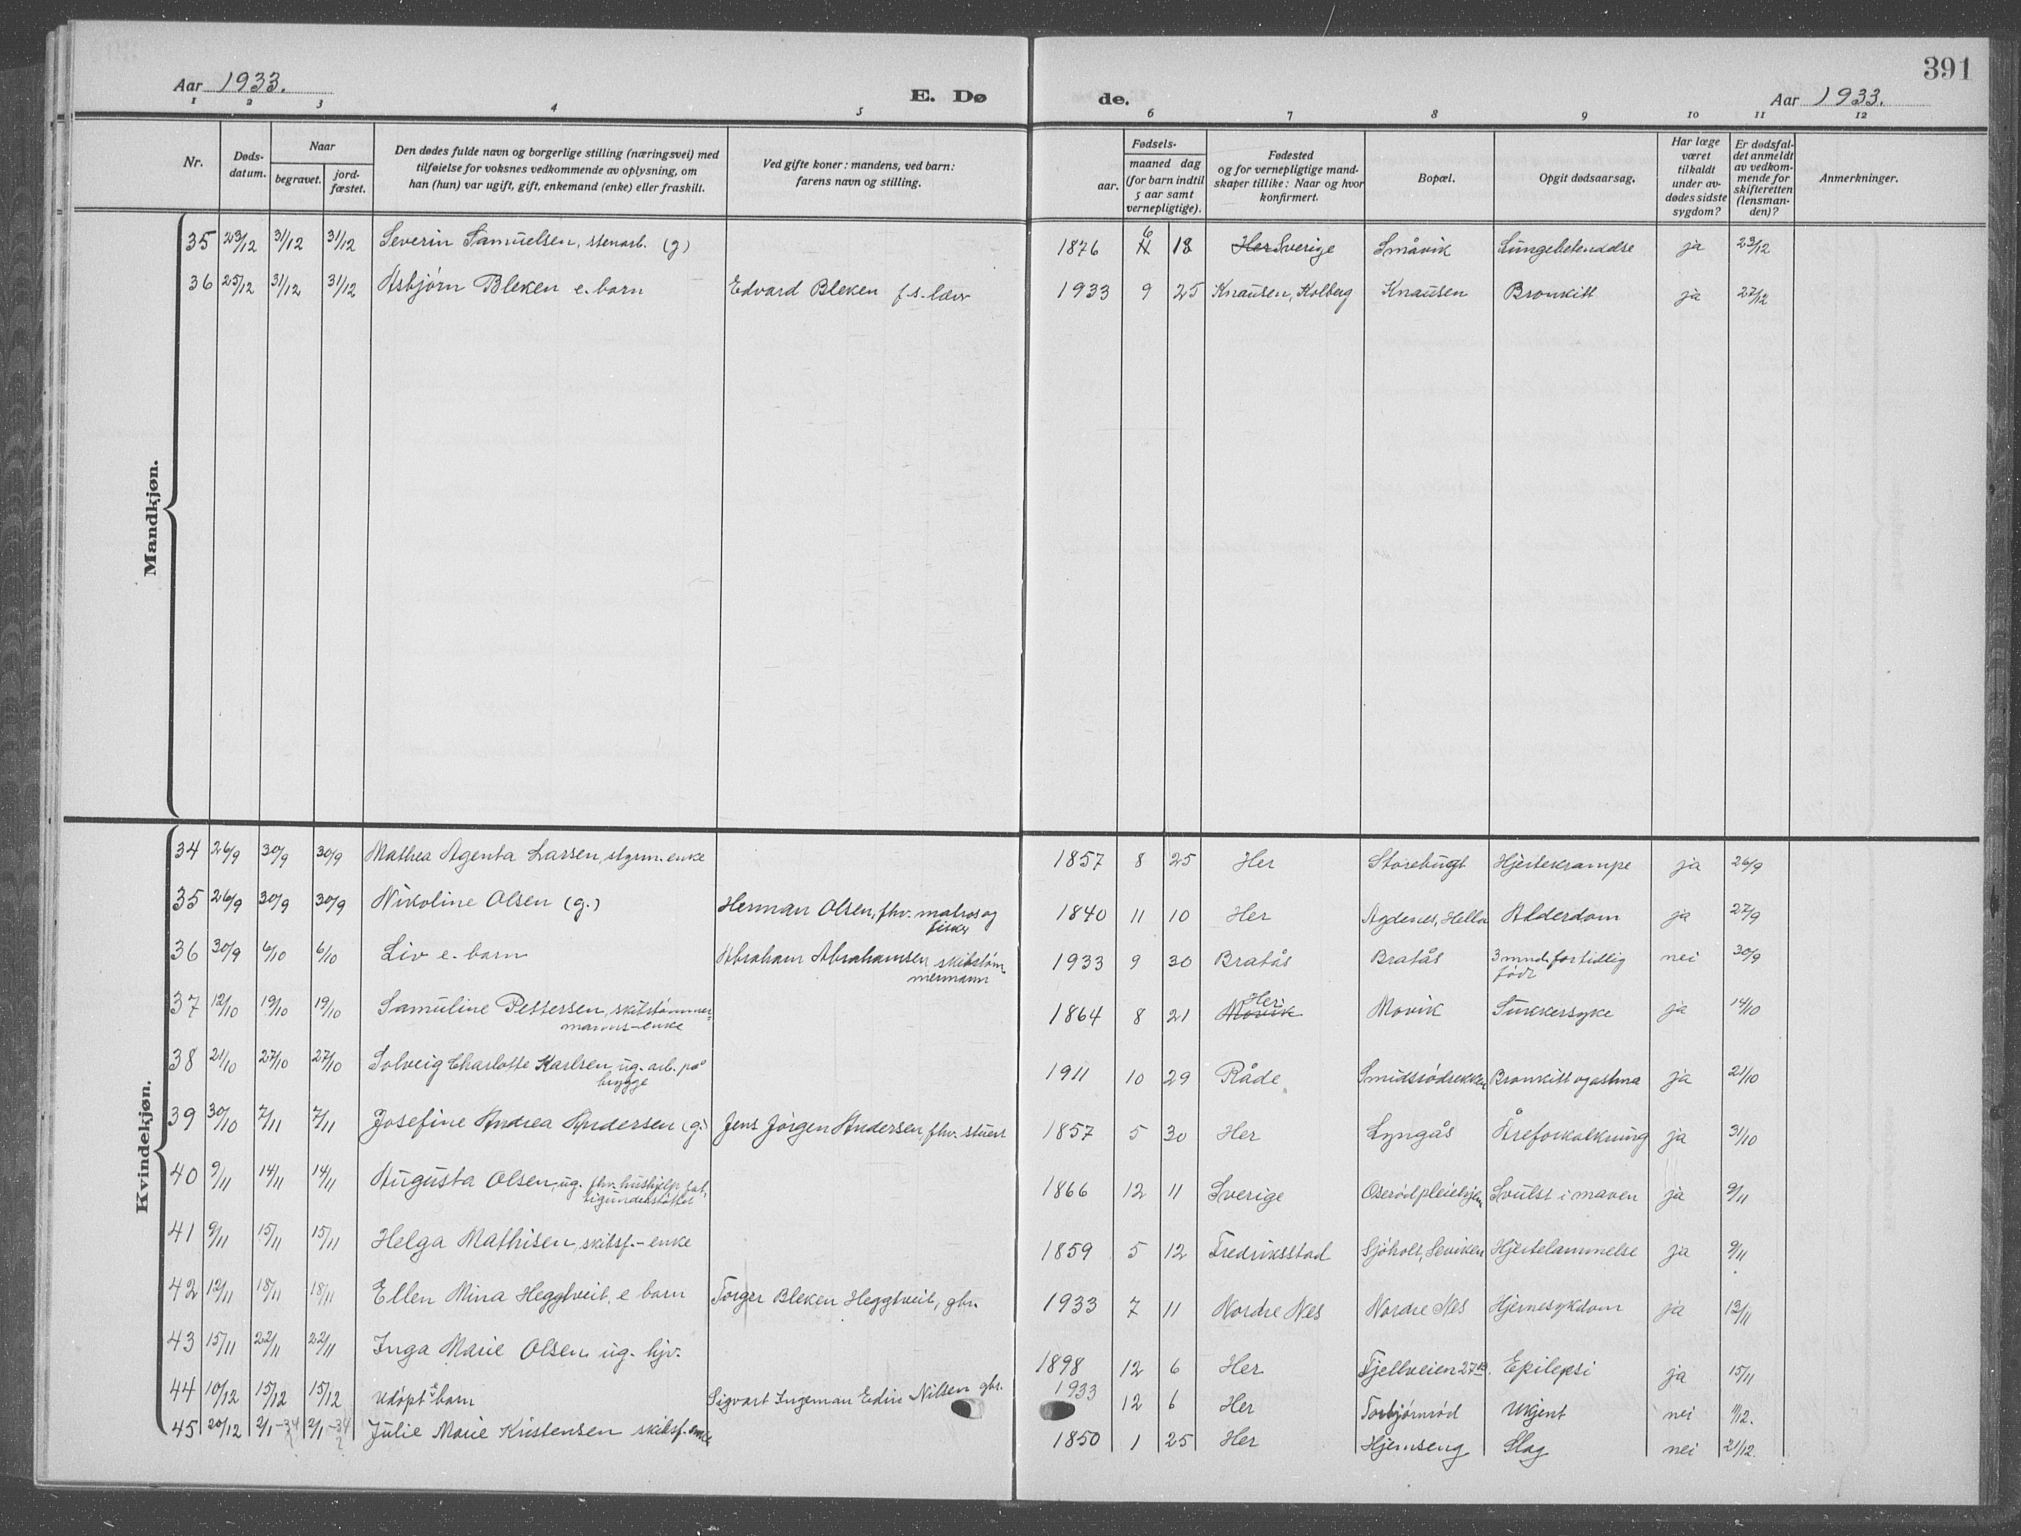 391
Aar 1933.
E. Dø de.
Aar 1933.
1 2 3 4 5 6 7 8 9 10 11 12
Nr. Døds-datum. Naar begravet. jord-fæstet. Den dødes fulde navn og borgerlige stilling (næringsvei) med tilføielse for voksnes vedkommende av oplysning, om han (hun) var ugift, gift, enkemand (enke) eller fraskilt. Ved gifte koner: mandens, ved barn: farens navn og stilling. Fødsels- aar. maaned dag (for barn indtil 5 aar samt vernepligtige). Fødested og for vernepligtige mand-skaper tillike: Naar og hvor konfirmert. Bopæl. Opgit dødsaarsag. Har læge været tilkaldt under av-dødes sidste sygdom? Er dødsfal-det anmeldt av vedkom-mende for skifteretten (lensman-den)? Anmerkninger.
Mandkjøn.
35 23/12 31/12 31/12 Severin Samuelsen, stenarb. (g) 1876 6 18 Her Sverige Småvik Lungebetendelse ja 23/12
36 25/12 31/12 31/12 Asbjørn Bleken e. barn Edvard Bleken f.s. lærer 1933 9 25 Knausen, Kolberg Knausen Bronkitt ja 27/12
Kvindekjøn.
34 26/9 30/9 30/9 Mathea Agenta Larsen, styrm. enke 1857 8 25 Her Storebugt Hjertekrampe ja 26/9
35 26/9 30/9 30/9 Nikoline Olsen (g.) Herman Olsen, fhv. matros og fisker 1840 11 10 Her Agdenes, Hella Alderdom ja 27/9
36 30/9 6/10 6/10 Liv e. barn Abraham Abrahamsen skibstøm-mermann 1933 9 30 Bratås Bratås 3 mnd. for tidlig født nei 30/9
37 12/10 19/10 19/10 Samuline Pettersen, skibstømmer-manns-enke 1864 8 21 Movik Her Movik Sukkersyke ja 14/10
38 21/10 27/10 27/10 Solveig Charlotte Karlsen, ug. arb. på brygge 1911 10 29 Råde Smidsrødrekken Bronkitt og astma ja 21/10
39 30/10 7/11 7/11 Josefine Andrea Andersen (g.) Jens Jørgen Andersen, fhv. stuert 1857 5 30 Her Lyngås Åreforkalkning ja 31/10
40 9/11 14/11 14/11 Augusta Olsen, ug. fhv. hushjelp, fat-tigunderstøttet 1866 12 11 Sverige Oserød pleiehjem Svulst i maven ja 9/11
41 9/11 15/11 15/11 Helga Mathisen, skibsf.-enke 1859 5 12 Fredriksstad Sjøholt, Seviken Hjertelammelse ja 9/11
42 12/11 18/11 18/11 Ellen Mina Heggtveit, e barn Torger Bleken Heggtveit, gbr. 1933 7 11 Nordre Nes Nordre Nes Hjernesykdom ja 13/11
43 15/11 22/11 22/11 Inga Marie Olsen ug. hjv. 1898 12 6 Her Fjellveien 27 Epilepsi ja 15/11
44 10/12 15/12 15/12 udøpt e barn Sigvart Ingeman Edin Nilsen gbr. 1933 12 6 Her Torbjørnrød Ukjent nei 11/12.
45 20/12 2/1-34 2/1-34 Julie Marie Kristensen skibsf. enke 1850 1 25 Her Hjemseng Slag nei 21/12.